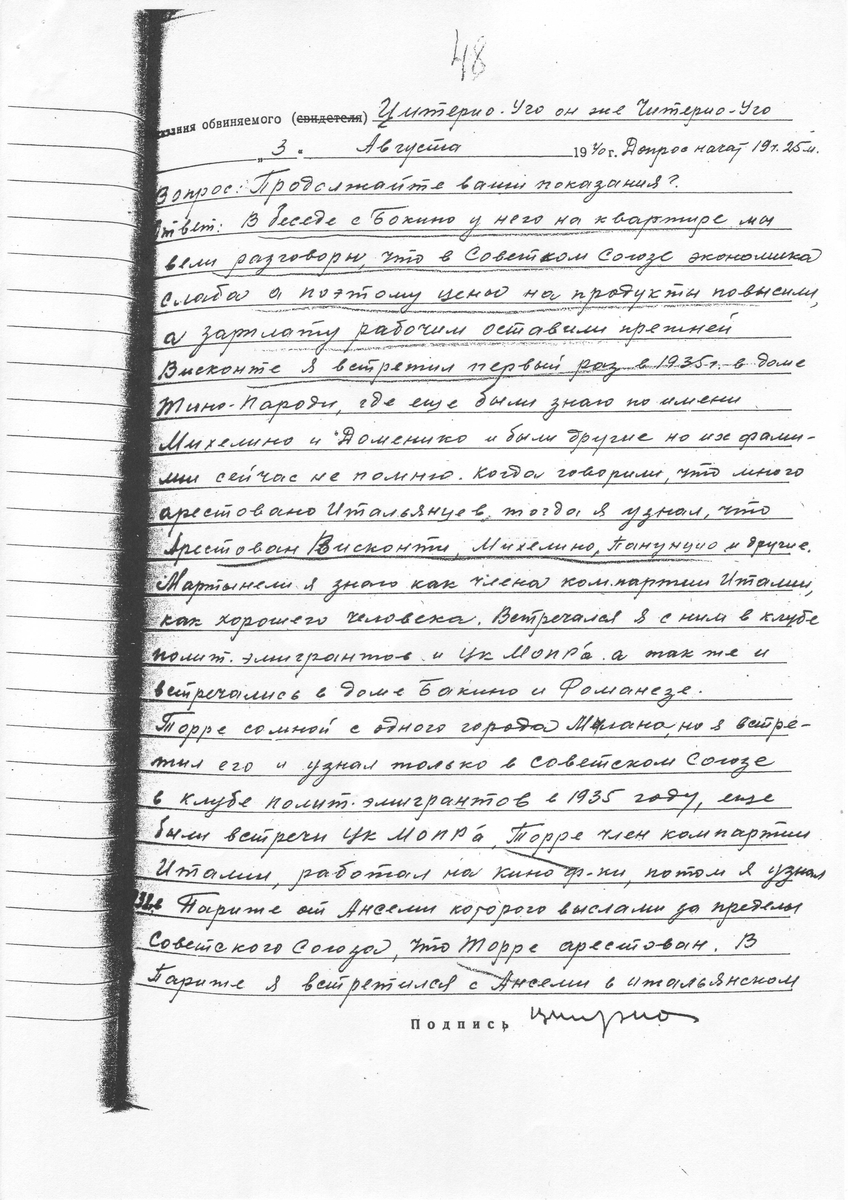 48
зания обвиняемого (свидетеля) Цитерио-Уго он же Читерио-Уго
„3" Августа 1940 г. Допрос начат 19 ч. 25 м.
Вопрос: Продолжайте ваши показания?
Ответ: В беседе с Бокино у него на квартире мы
вели разговоры, что в Советском Союзе экономика
слаба а поэтому цены на продукты повысили,
а зарплату рабочим оставили прежней
Висконте я встретил первый раз в 1935 г. в доме
Тино-Пароди, где еще были знаю по имени
Михелино и Доменико и были другие но их фами-
лии сейчас не помню. Когда говорили, что много
арестовано Итальянцев, тогда я узнал, что
Арестован Висконти, Михелино, Панунцио и другие.
Мартынели я знаю как члена компартии Италии,
как хорошего человека. Встречался я с ним в клубе
полит. эмигрантов и ЦК МОПР'а а так же и
встречались в доме Бакино и Романезе.
Торре со мной с одного города Милана, но я встре-
тил его и узнал только в Советском Союзе
в клубе полит. эмигрантов в 1935 году, еще
были встречи ЦК МОПР'а, Торре член компартии
Италии, работал на кино ф-ки, потом я узнал
38 в Париже от Ансели которого выслали за пределы
Советского Союза, что Торре арестован. В
Париже я встретился с Ансели в итальянском
Подпись